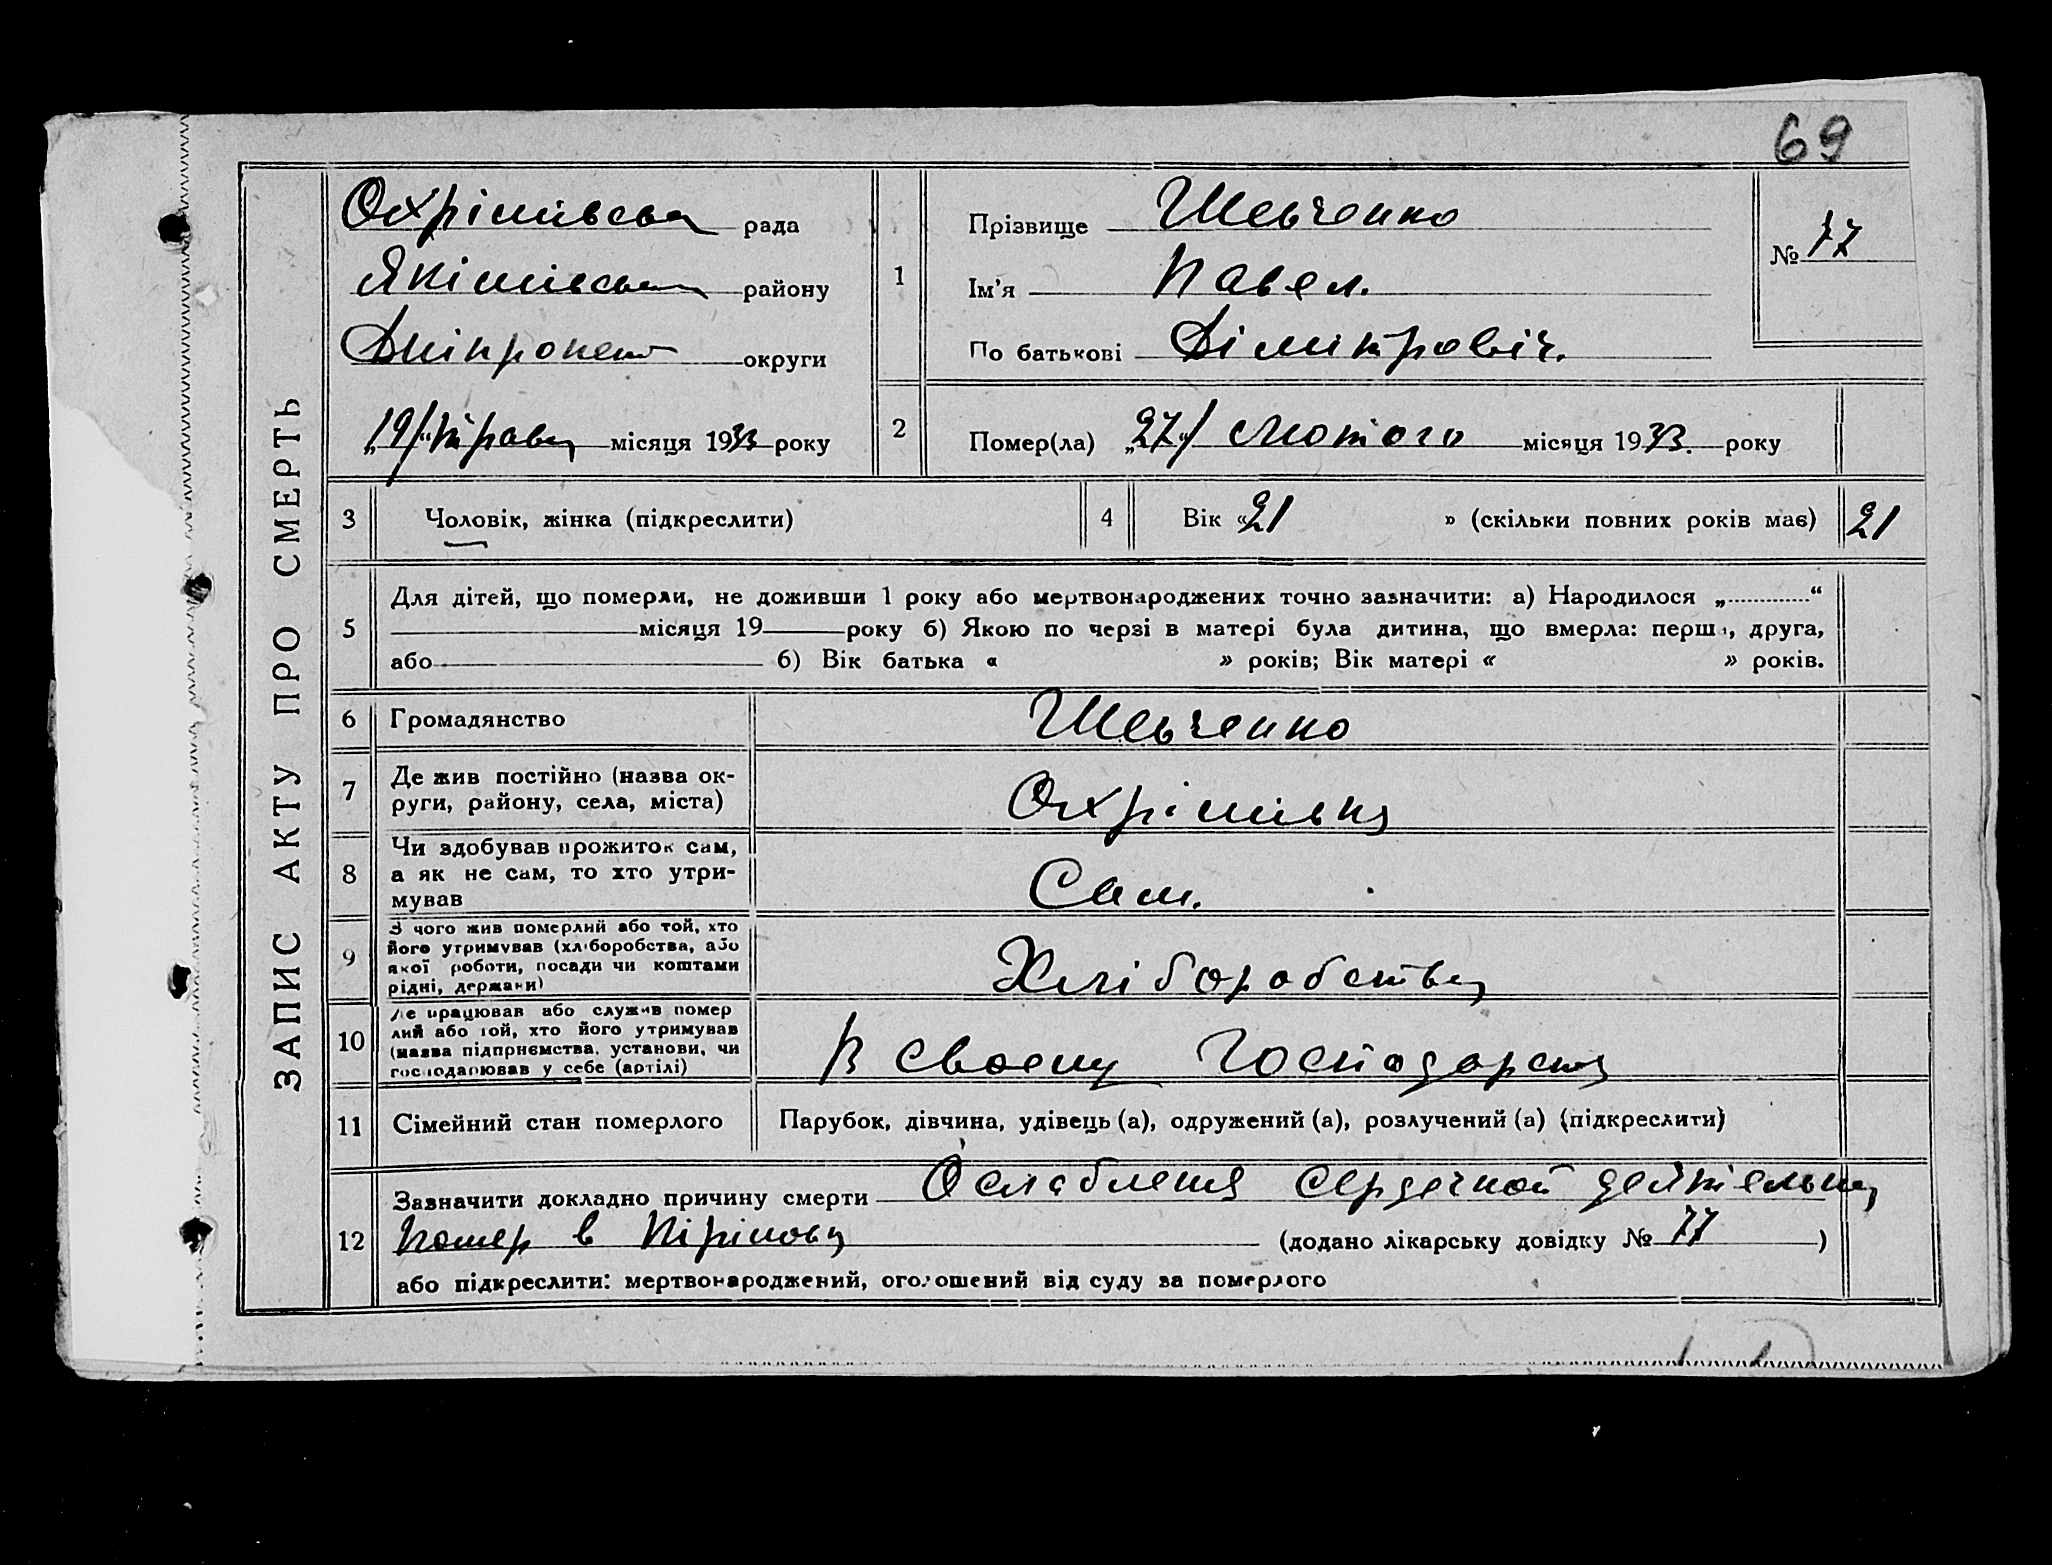 69
ЗАПИС АКТУ ПРО СМЕРТЬ
Охрімівська рада
Якімівська району
Дніпропет округи
„19/“ травня місяця 1933 року
1
Прізвище Шевченко
Ім'я Павел.
По батькові Дімітровіч.
№ 77
2
Помер(ла) „27“/ Лютого місяця 1933. року
3 Чоловік, жінка (підкреслити)
4 Вік «21 » (скільки повних років має) 21
5 Для дітей, що померли, не доживши 1 року або мертвонароджених точно зазначити: а) Народилося „ “
місяця 19 року б) Якою по черзі в матері була дитина, що вмерла: перша, друга,
або б) Вік батька « » років; Вік матері « » років.
6 Громадянство Шевченко
7 Де жив постійно (назва ок-
руги, району, села, міста) Охрімівка
8 Чи здобував прожиток сам,
а як не сам, то хто утри-
мував Сам.
9 З чого жив померлий або той, хто
його утримував (хліборобства, або
якої роботи, посади чи коштами
рідні, держави) Хліборобства
10 Де працював або служив помер
лий або той, хто його утримував
(назва підприємства, установи, чи
господарював у себе (артілі) В своему господарст
11 Сімейний стан померлого Парубок, дівчина, удівець (а), одружений (а), розлучений (а) (підкреслити)
12 Зазначити докладно причину смерти Ослаблення сердечной деятіельн
Помер в (додано лікарську довідку № 77 )
або підкреслити: мертвонароджений, оголошений від суду за померлого